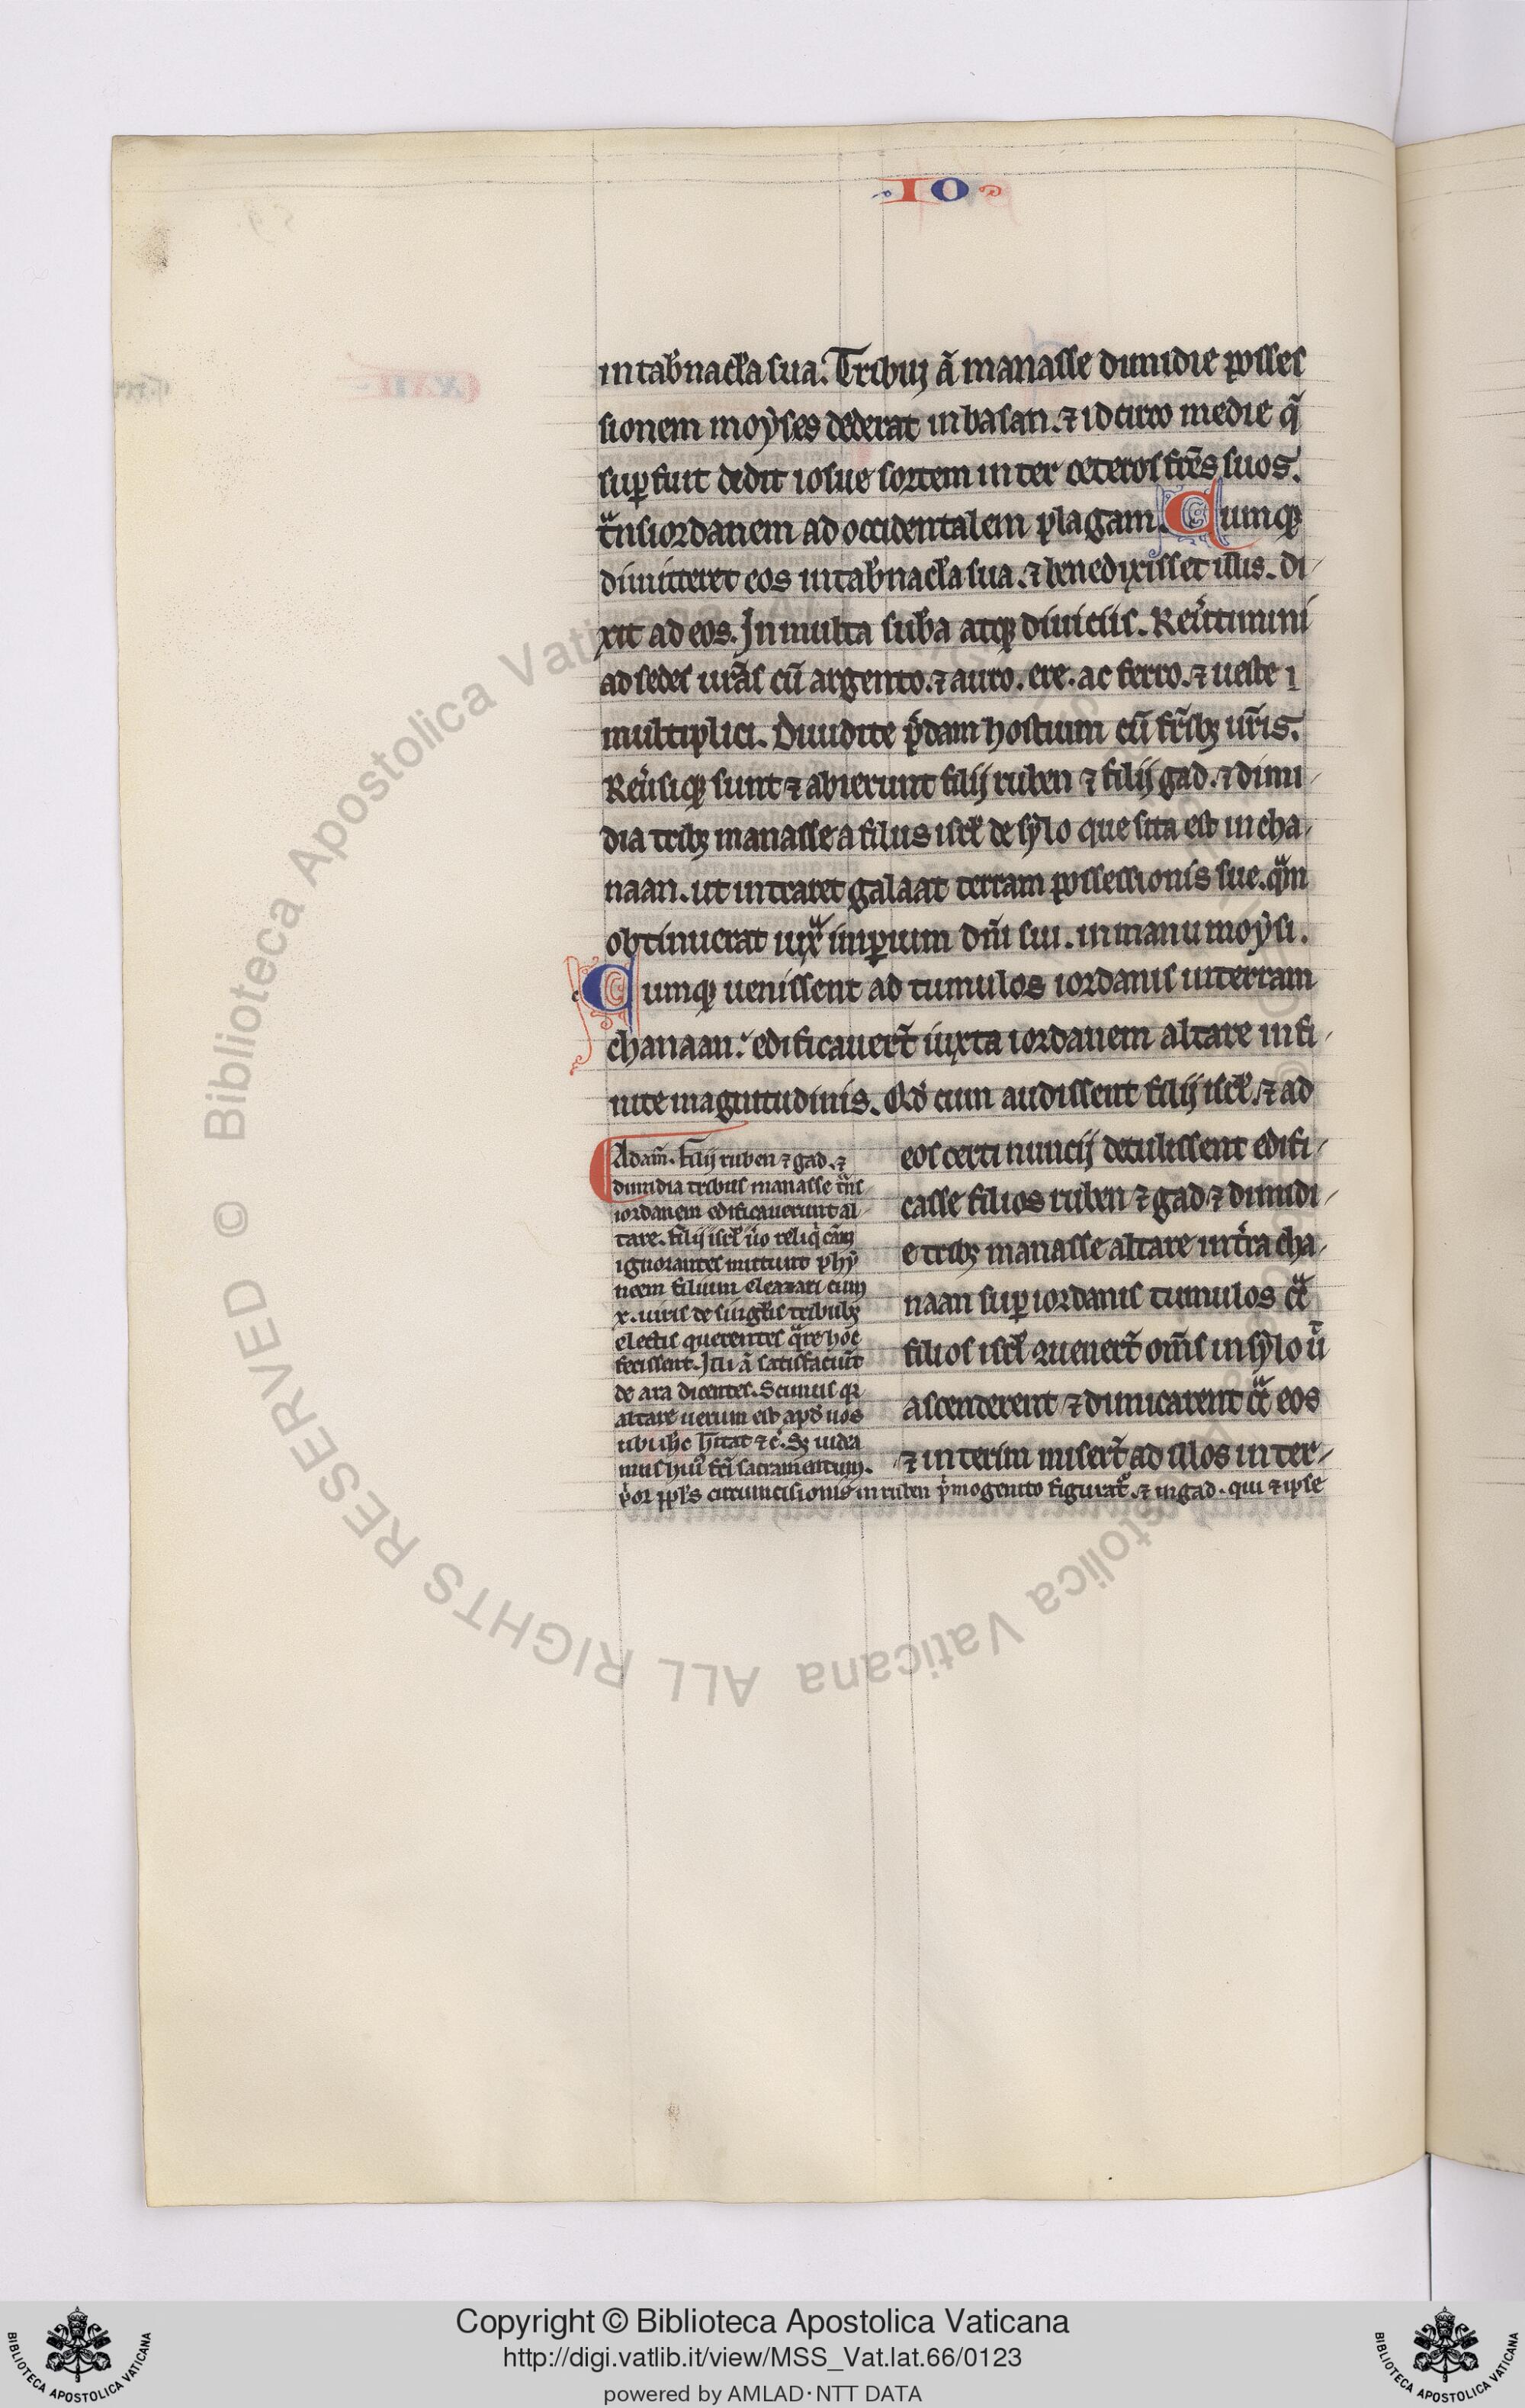 IO
in tab̃nacl̃a sua. Tribuj ã manasse dimidie posses
sionem moẏses dederat in basan. ⁊ idcirco medie q̃
suꝑfuit dedit iosue sortem inter ceteros fr̃es suos.
tᵃnsiordanem ad occidentalem plagam. Cumqꝫ
dimitteret eos in tab̃nacl̃a sua. ⁊ benedixisset illis. di
xit ad eos. In multa sub̃a atqꝫ diuiciis. Reũtimini
ad sedes ur̃as cũ argento. ⁊ auro. ere. ac ferro. ⁊ ueste
multiplici. Diuidite p̃dam hostium cũ fr̃ibꝫ ur̃is.
Reũsiqꝫ sunt ⁊ abierunt filij ruben ⁊ filij gad. ⁊ dimi
dia tribꝫ manasse a filiis isrl̃ de sẏlo que sita est in cha
naan. ut intraret galaat terram possessionis sue. qᵃm
obtinuerat iuxᵃ imꝑium dñi sui. in manu moẏsi.
Cumqꝫ uenissent ad tumulos iordanis in terram
chanaan. edificauer̃t iuxta iordanem altare infi
nite magnitudinis. Qd̃ cum audissent filij isrl̃. ⁊ ad
eos certi nuncij detulissent edifi
casse filios ruben ⁊ gad ⁊ dimidi
e tribꝫ manasse altare in t̃ra cha
naan suꝑ iordanis tumulos cᵃ
filios isrl̃ ꝯuener̃t om̃s in sẏlo ut̃
ascenderent ⁊ dimicarent cᵃ eos
⁊ interim miser̃t ad illos in ter
Adam̃. filij ruben ⁊ gad. ⁊
dimidia tribus manasse tᵃns
iordanem edificauerunt al
tare. filij isrl̃ ũo reliqⁱ cãm
ignorantes mittunt phẏ
neem filium eleazari cum
x. uiris de singl̃is tribubꝫ
electis querentes qᵃre hoc
fecissent. Isti ã satisfaciũt
de ara dicentes. Scimus qꝫ
altare uerum est apd̃ uos
ubi hc̃ h̃itat ⁊ c̃. Sꝫ uidea
mus huiꝰ fc̃i sacramentum.
pⁱor ppl̃s circumcisionis in ruben pⁱmogenito figuratᷣ. ⁊ in gad. qui ⁊ ipse
Copyright © Biblioteca Apostolica Vaticana
http://digi.vatlib.it/view/MSS_Vat.lat.66/0123
powered by AMLAD·NTT DATA
BIBLIOTECA APOSTOLICA VATICANA
BIBLIOTECA APOSTOLICA VATICANA